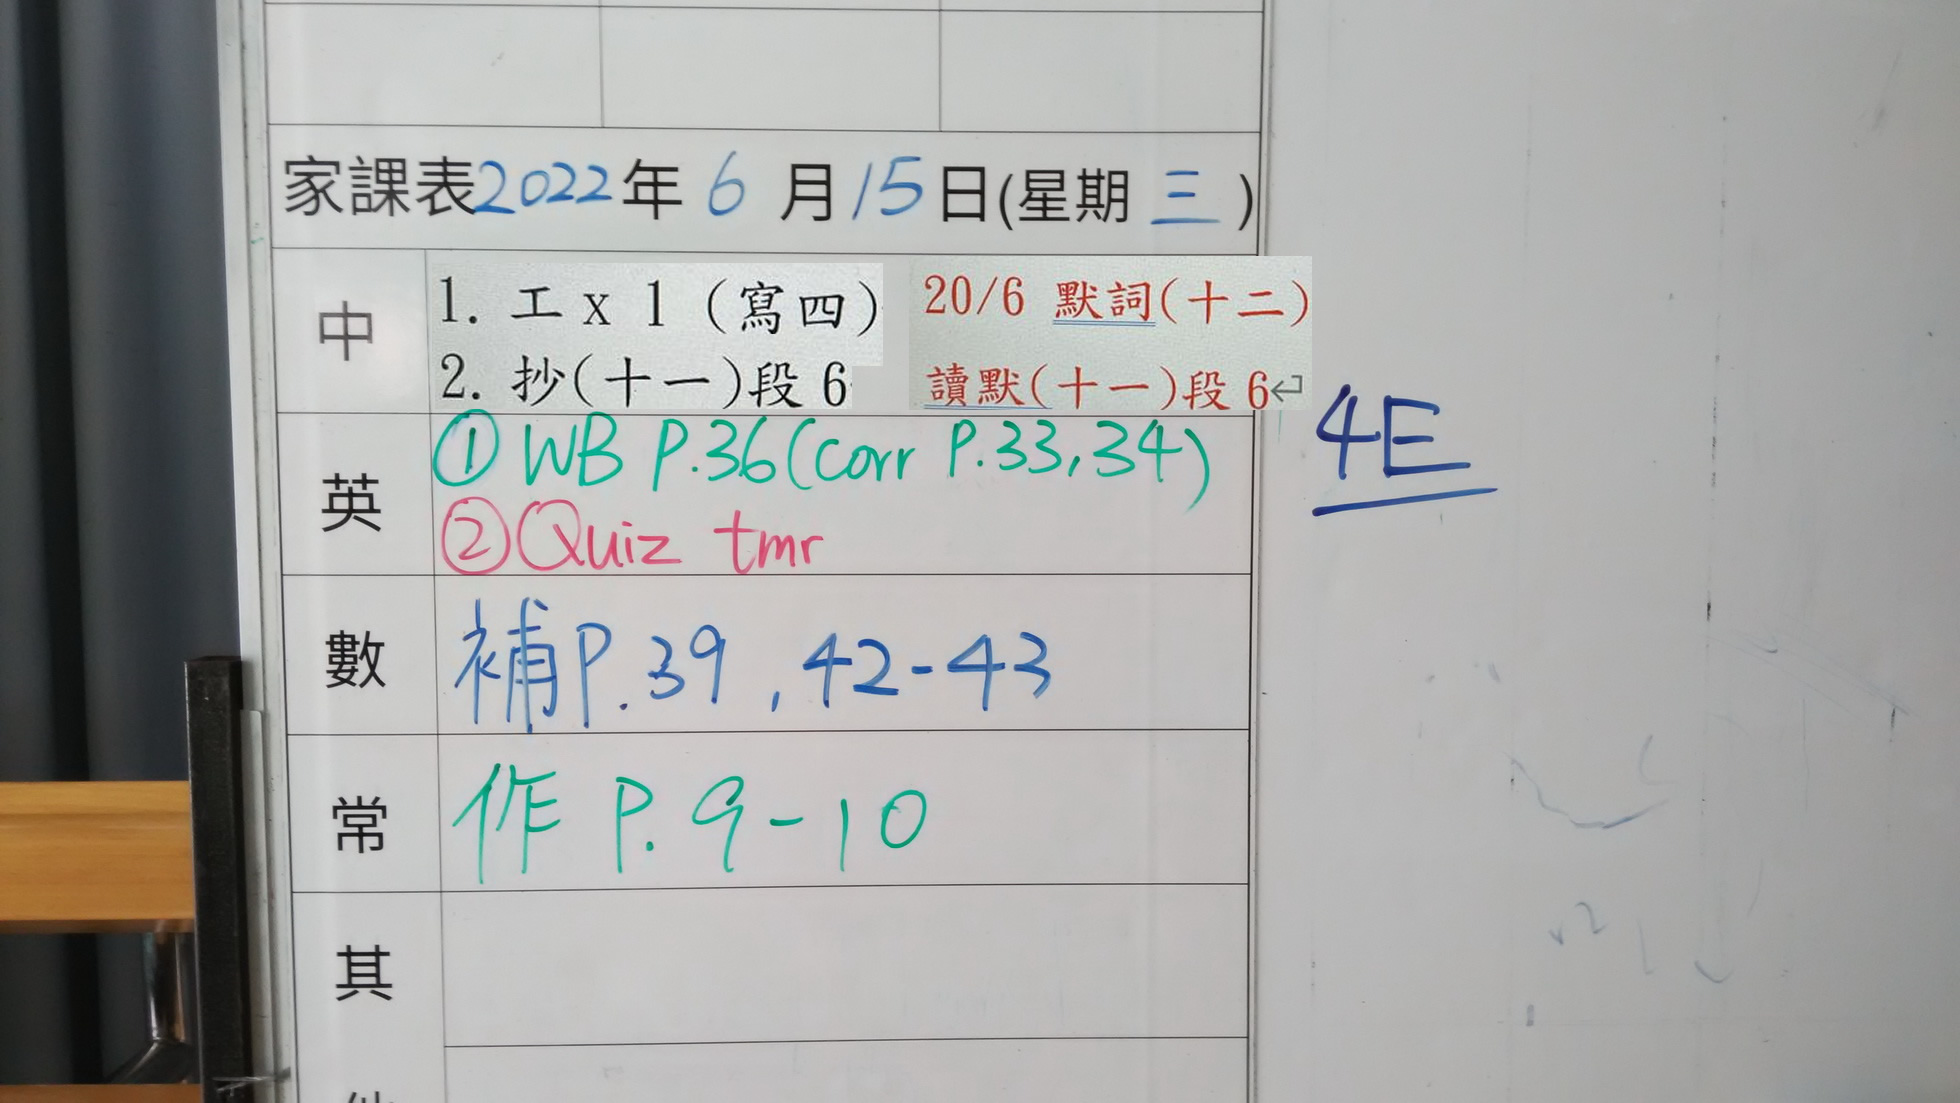 家課表2022年 6 月15日(星期 三 )
中
1. 工 x 1 (寫四)
2. 抄(十一)段 6
20/6 默詞(十二)
讀默(十一)段 6↵
英
① WB P.36(corr P.33,34)
② Quiz tmr
4E
數
補P.39 , 42-43
常
作 P. 9-10
其